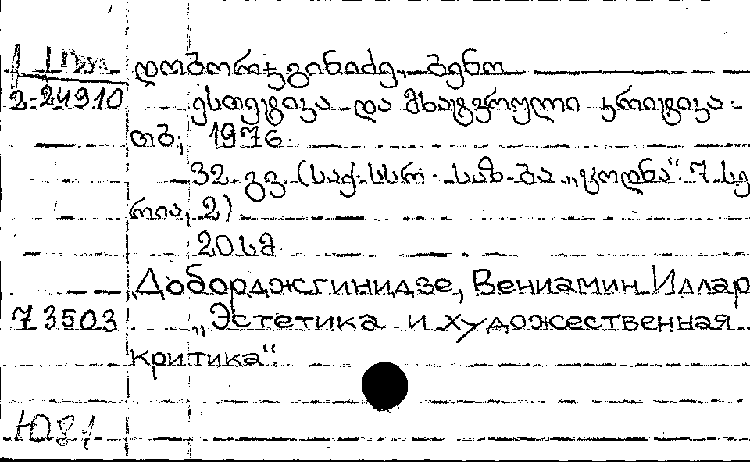 დობორჯგინიძე, ბენო
2-24910 ესთეტიკა და მხატვრული კრიტიკა.
თბ., 1976.
32 გვ. (საქ. სსრ. საზ-ბა „ცოდნა“. 7. სე
რია, 2)
20 სმ.
Доборджгинидзе, Вениамин Иллар
73503 „Эстетика и художественная
критика“.
Ю81